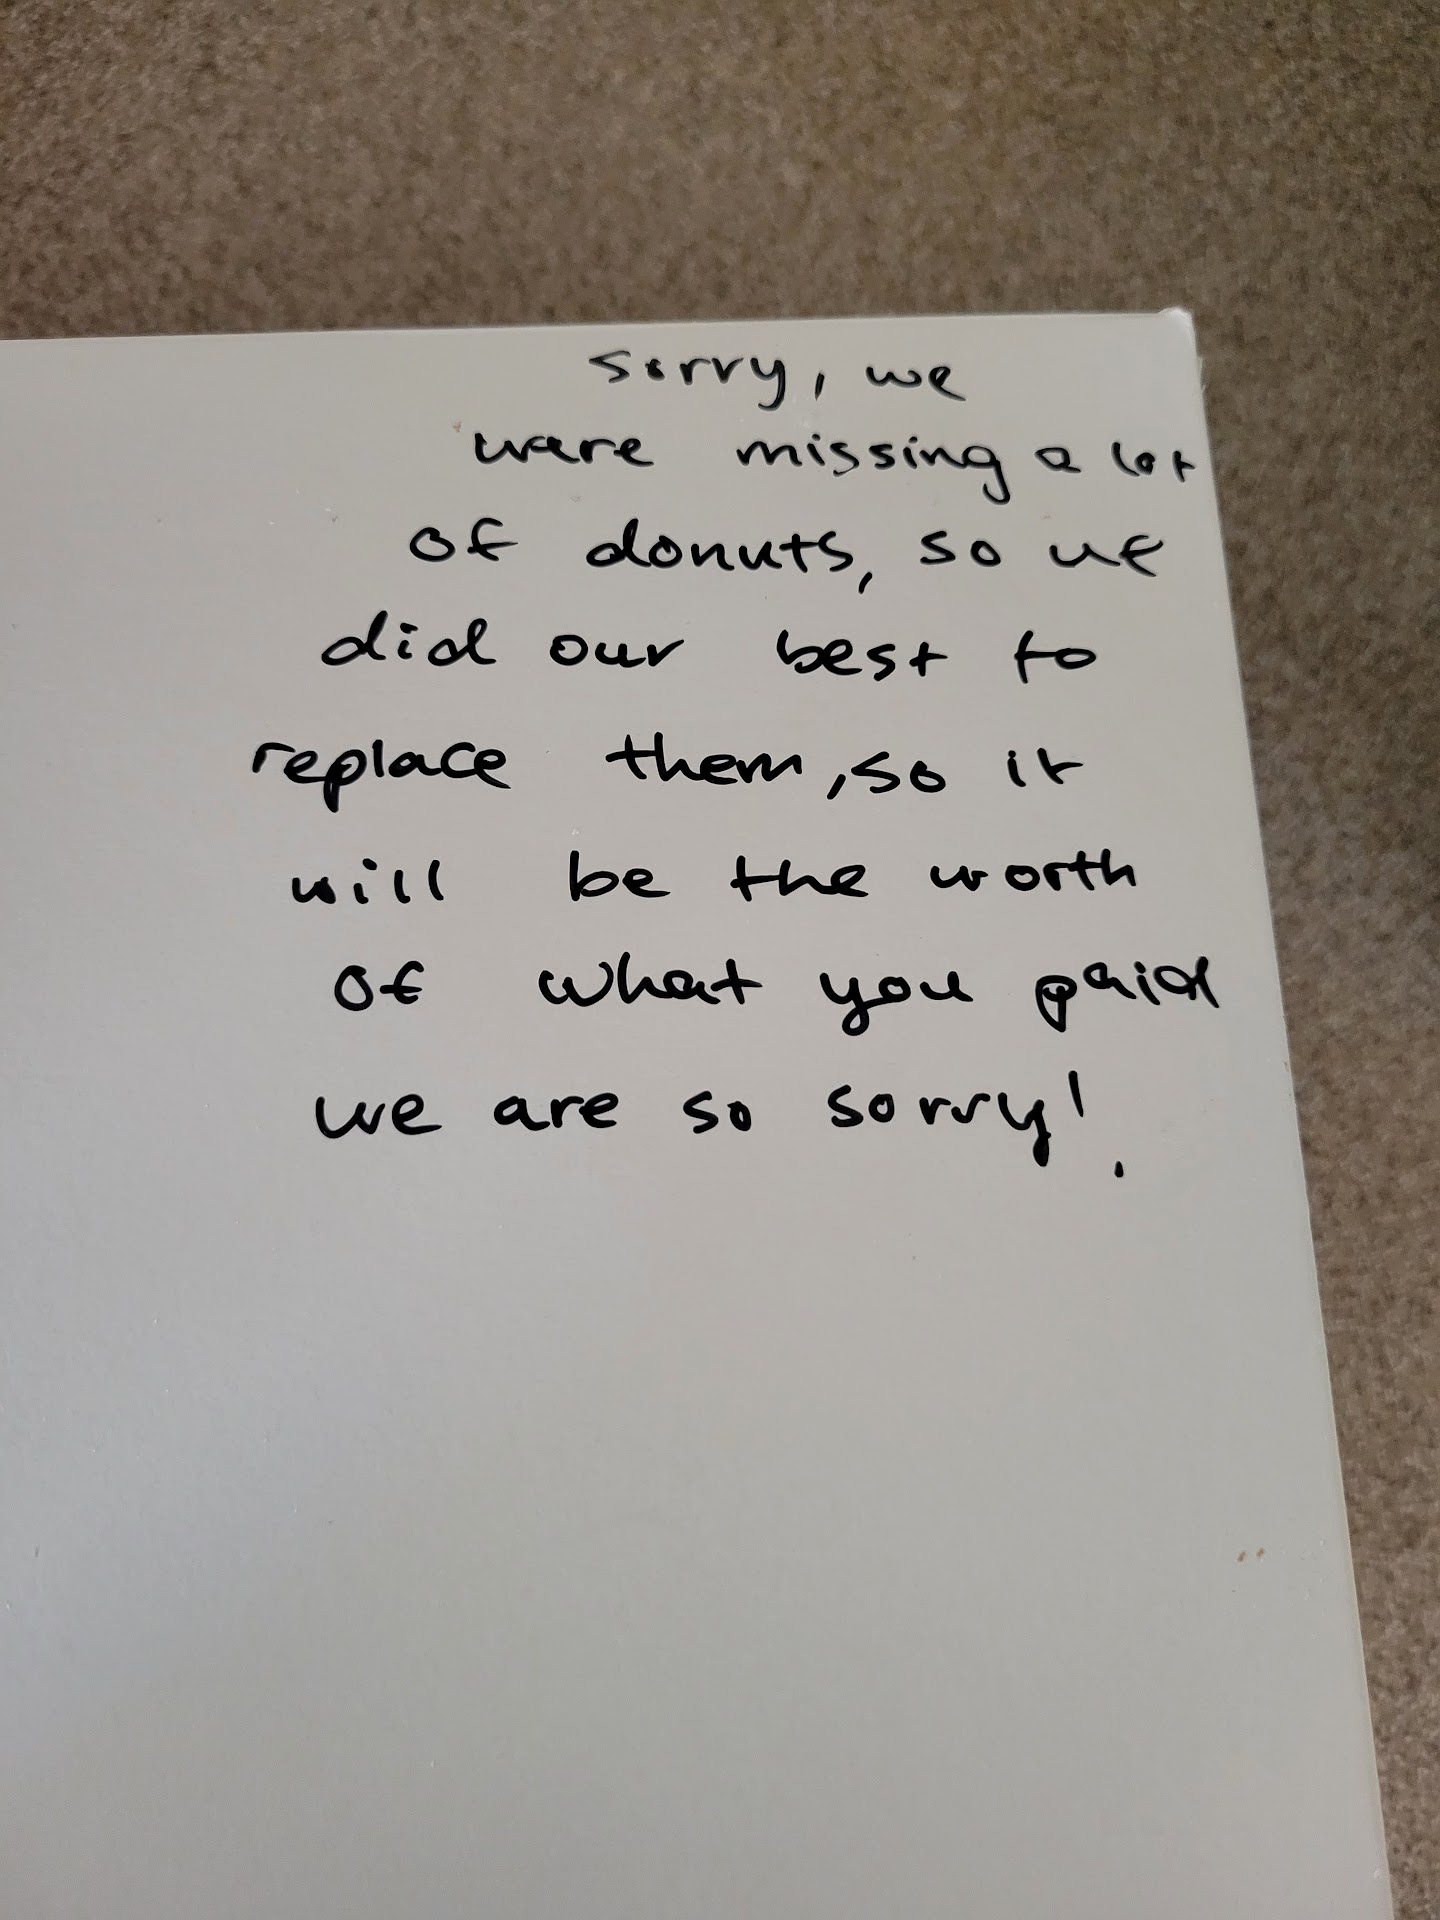 sorry, we
were missing a lot
of donuts, so we
did our best to
replace them, so it
will be the worth
of what you paid
we are so sorry!